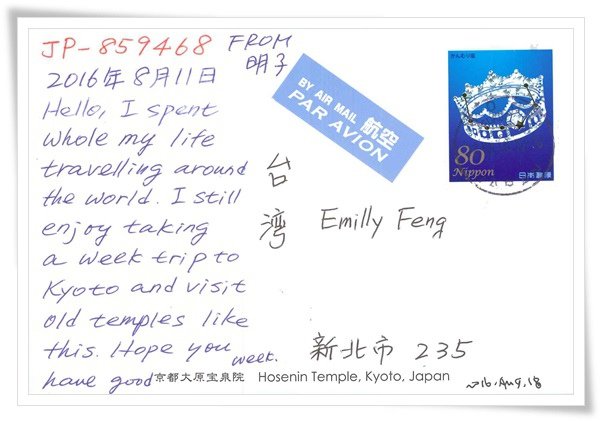 JP-859468 FROM
明子
2016年8月11日
Hello, I spent
whole my life
travelling around
the world. I still
enjoy taking
a week trip to
Kyoto and visit
old temples like
this. Hope you
have good week.
BY AIR MAIL 航空
PAR AVION
かんむり座
80
Nippon 日本郵便
台
湾
Emilly Feng
新北市 235
京都大原宝泉院 Hosenin Temple, Kyoto, Japan
2016.Aug.18